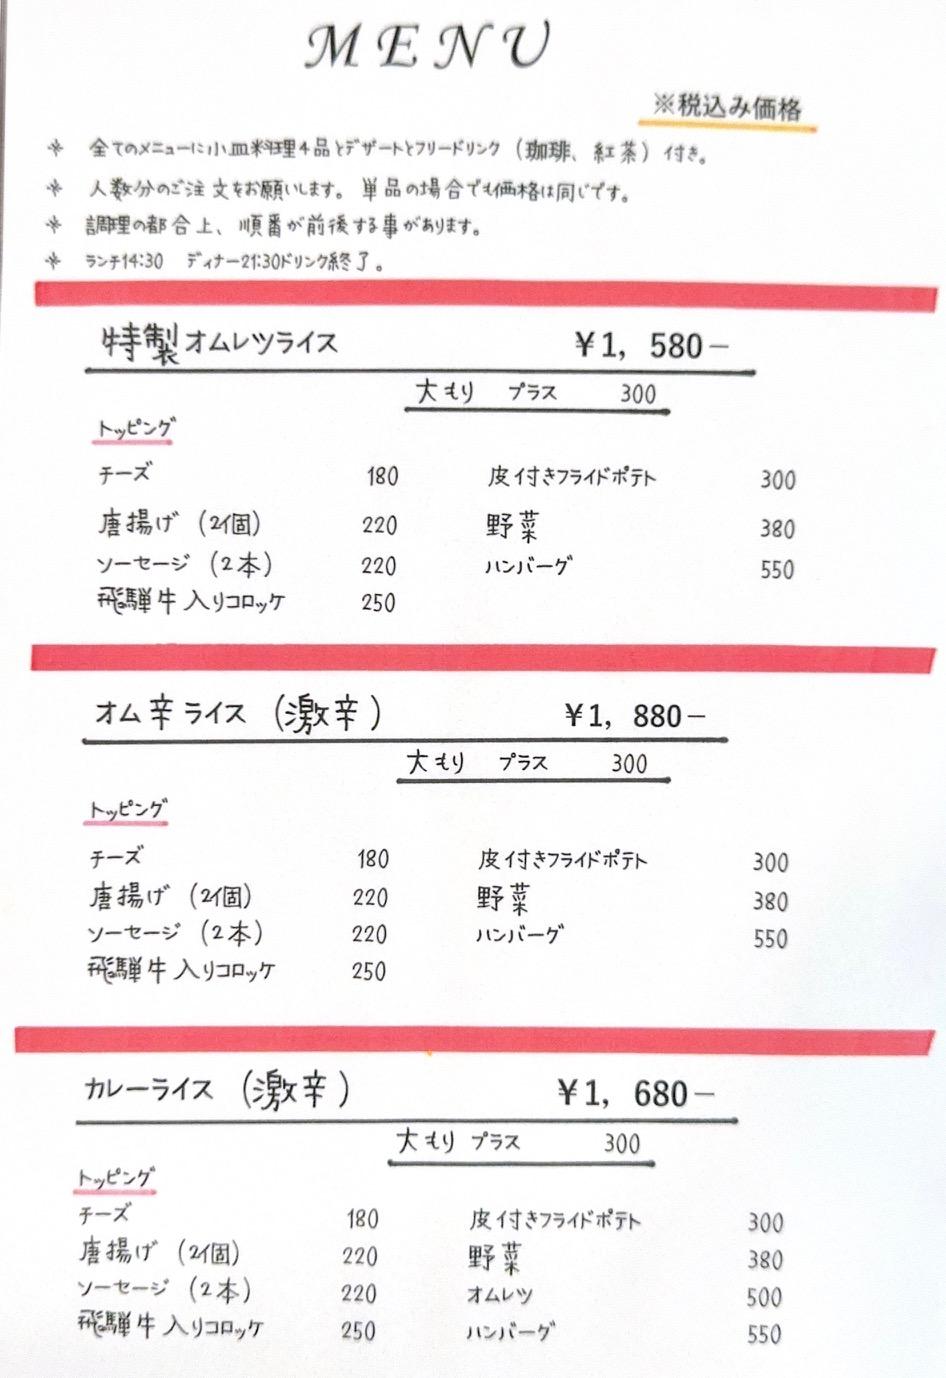 MENU
※税込み価格
※ 全てのメニューに小皿料理4品とデザートとフリードリンク（珈琲、紅茶）付き。
※ 人数分のご注文をお願いします。単品の場合でも価格は同じです。
※ 調理の都合上、順番が前後する事があります。
※ ランチ14:30 ディナー21:30ドリンク終了。
特製オムレツライス ￥1，580－
大もり プラス 300
トッピング
チーズ 180 皮付きフライドポテト 300
唐揚げ（2個） 220 野菜 380
ソーセージ（2本） 220 ハンバーグ 550
飛騨牛入りコロッケ 250
オム辛ライス（激辛） ￥1，880－
大もり プラス 300
トッピング
チーズ 180 皮付きフライドポテト 300
唐揚げ（2個） 220 野菜 380
ソーセージ（2本） 220 ハンバーグ 550
飛騨牛入りコロッケ 250
カレーライス（激辛） ￥1，680－
大もり プラス 300
トッピング
チーズ 180 皮付きフライドポテト 300
唐揚げ（2個） 220 野菜 380
ソーセージ（2本） 220 オムレツ 500
飛騨牛入りコロッケ 250 ハンバーグ 550